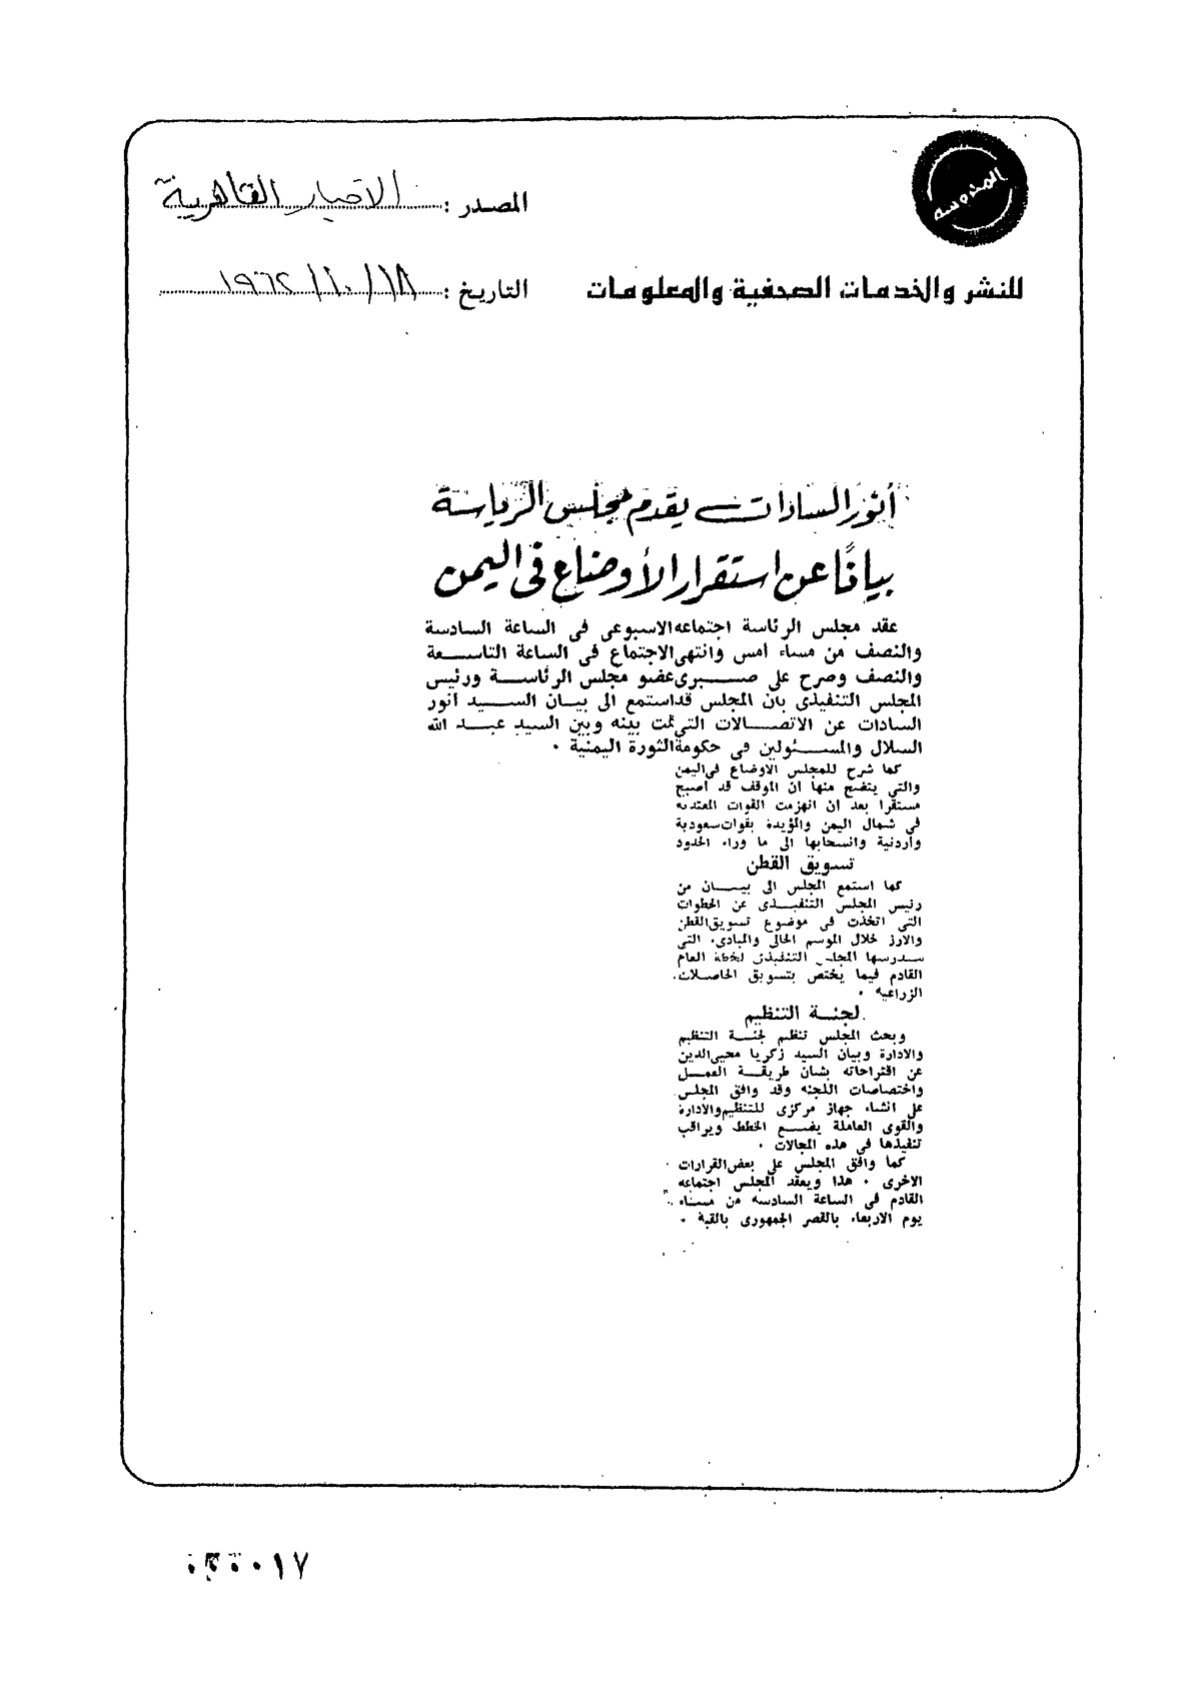 المحروسه
المصدر : الاخبار القاهرية
للنشر والخدمات الصحفية والمعلومات
التاريخ : ١٨/١٠/١٩٦٢
أنور السادات يقدم مجلس الرياسة
بيانًا عن استقرار الأوضاع فى اليمن
عقد مجلس الرئاسة اجتماعه الاسبوعى فى الساعة السادسة
والنصف من مساء امس وانتهى الاجتماع فى الساعة التاسعة
والنصف وصرح على صبرى عضو مجلس الرئاسة ورئيس
المجلس التنفيذى بأن المجلس قد استمع الى بيان السيد انور
السادات عن الاتصالات التى تمت بينه وبين السيد عبد الله
السلال والمسئولين فى حكومة الثورة اليمنية .
كما شرح للمجلس الاوضاع فى اليمن
والتى يتضح منها ان الموقف قد اصبح
مستقرا بعد ان انهزمت القوات المعتدية
فى شمال اليمن والمؤيدة بقوات سعودية
وأردنية وانسحابها الى ما وراء الحدود
تسويق القطن
كما استمع المجلس الى بيان من
رئيس المجلس التنفيذى عن الخطوات
التى اتخذت فى موضوع تسويق القطن
والارز خلال الموسم الحالى والمبادىء التى
سدرسها المجلس التنفيذى لخطة العام
القادم فيما يختص بتسويق الحاصلات
الزراعية .
لجنة التنظيم
وبحث المجلس تنظيم لجنة التنظيم
والادارة وبيان السيد زكريا محيى الدين
عن اقتراحاته بشان طريقة العمل
واختصاصات اللجنة وقد وافق المجلس
على انشاء جهاز مركزى للتنظيم والادارة
والقوى العاملة يضع الخطط ويراقب
تنفيذها فى هذه المجالات .
كما وافق المجلس على بعض القرارات
الاخرى . هذا ويعقد المجلس اجتماعه
القادم فى الساعة السادسة من مساء
يوم الاربعاء بالقصر الجمهورى بالقبة .